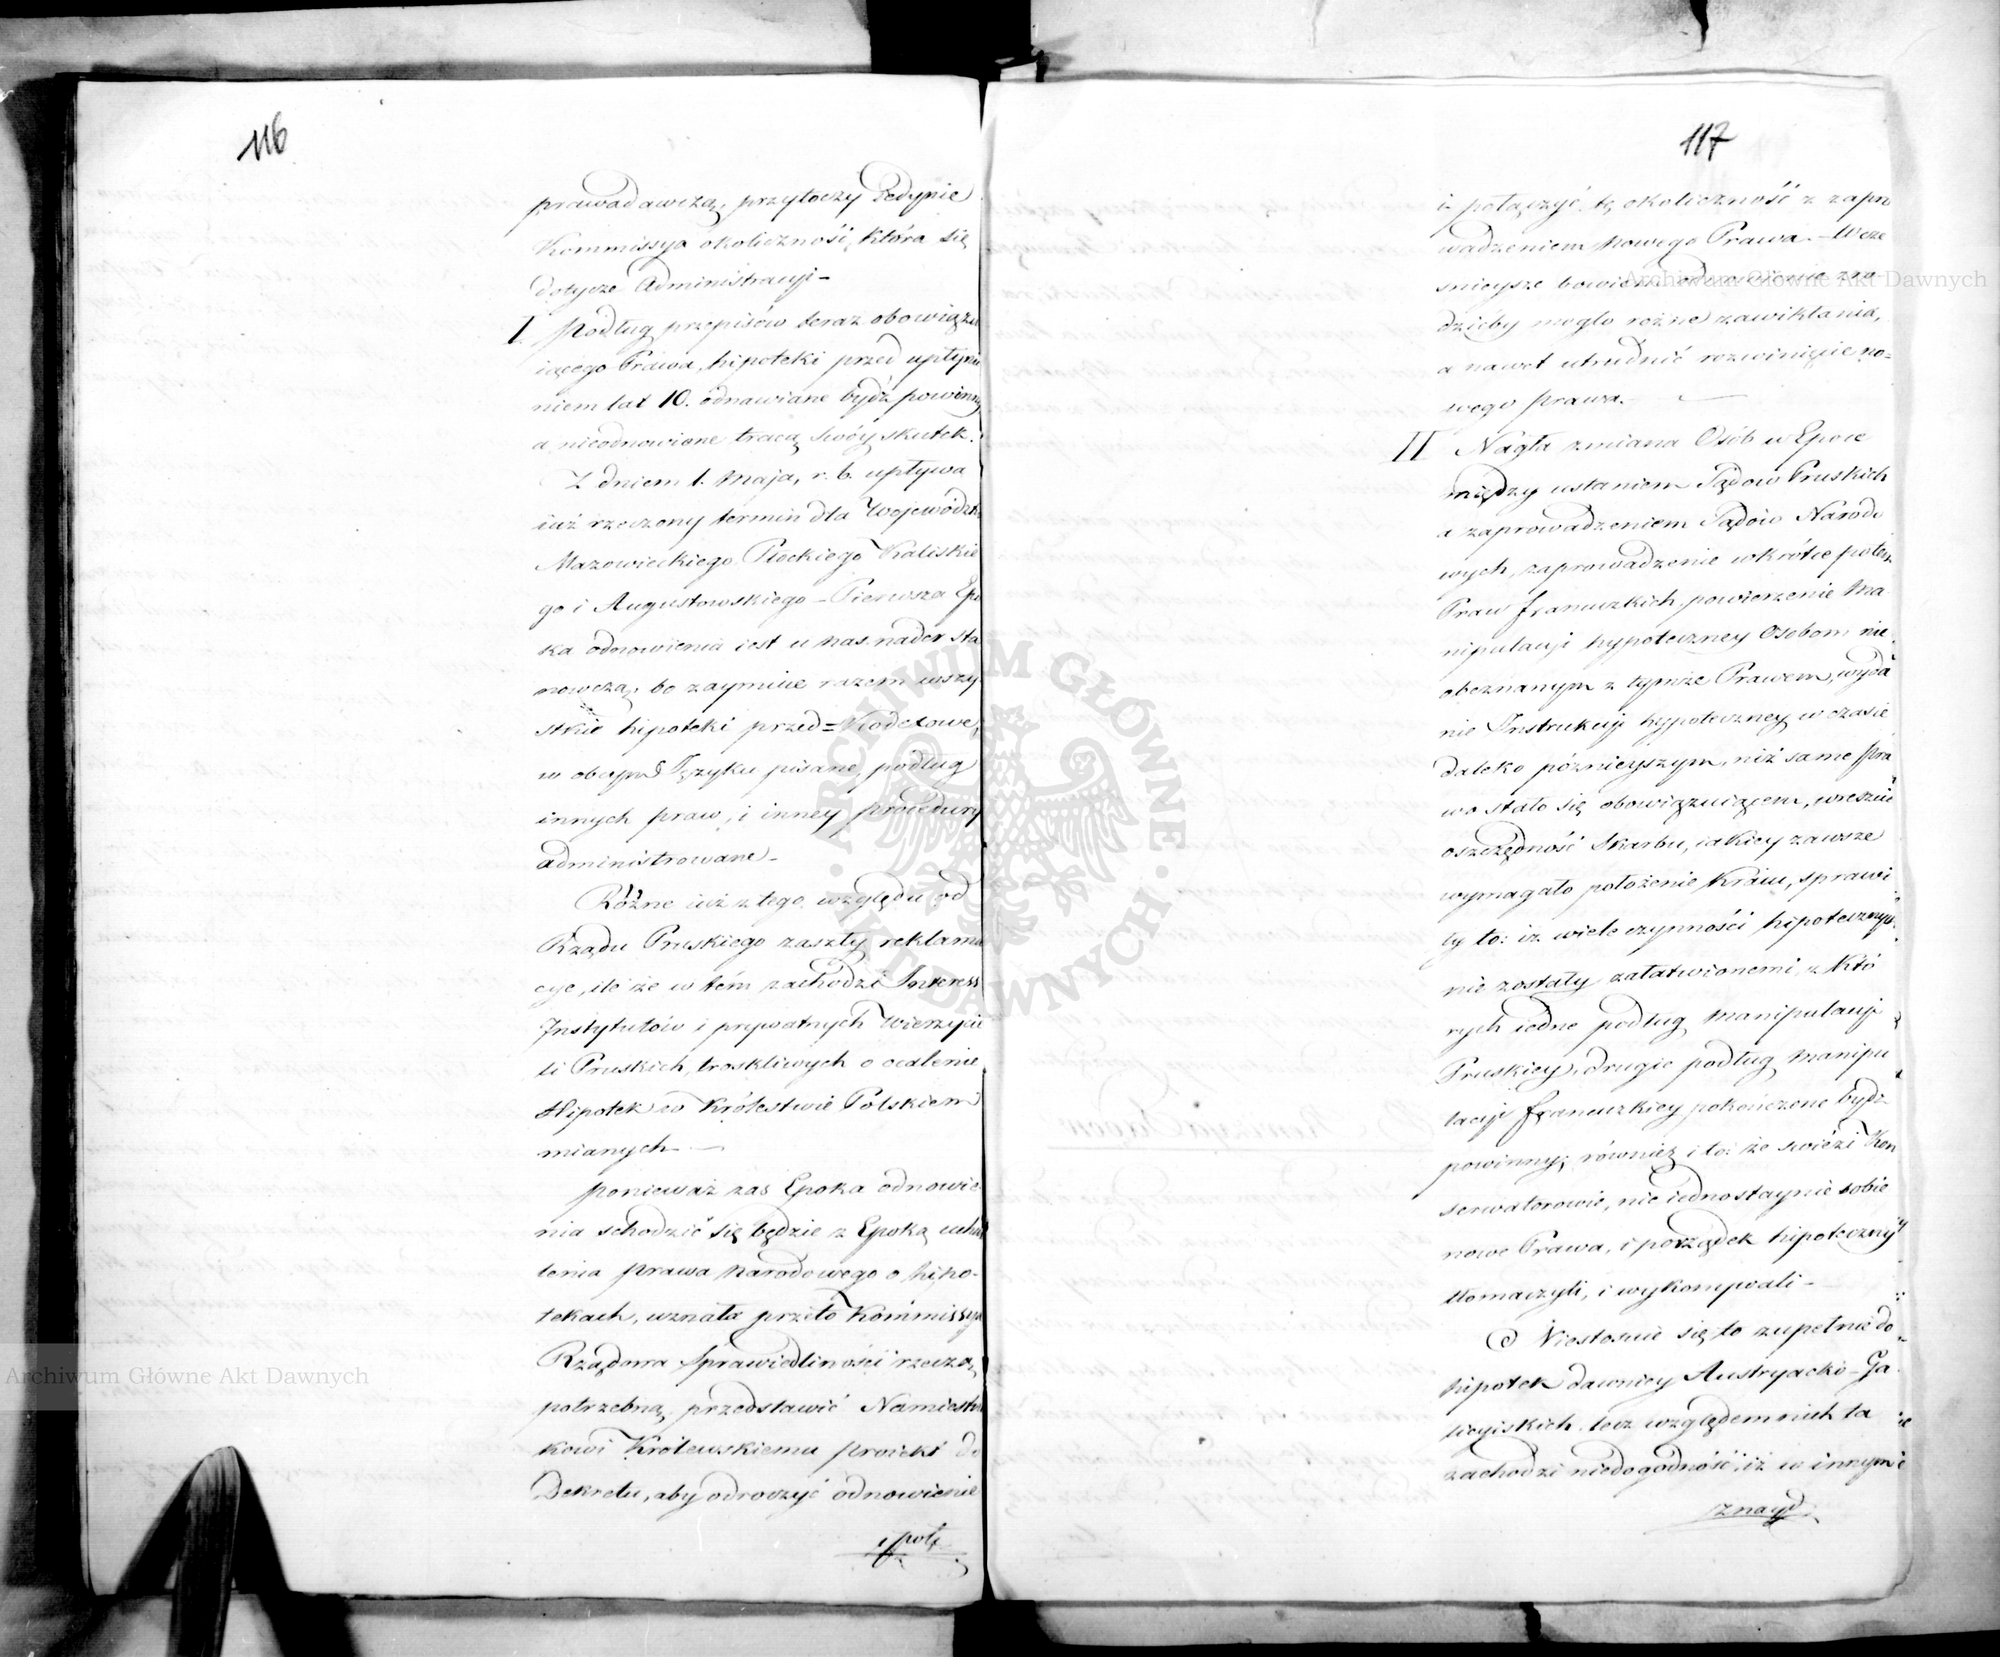 116
prawadawczą, przytoczy Jedynie
Kommissya okoliczność, która się
dotycze Administracyi –
I. Podług przepisów teraz obowiązu
iącego Prawa, hipoteki przed upłynie
niem lat 10. odnawiane bydź powinny
a nieodnowione tracą swóy skutek.
Z dniem 1. Maja, r. b. upływa
iuż rzeczony termin dla Wojewódz
Mazowieckiego Płockiego Kaliskie
go i Augustowskiego – Pierwsza Epo
ka odnowienia iest u nas nader sta
nowczą, bo zaymuie razem wszy
stkie hipoteki przed=Kodexowe,
w obcym Języku pisane, podług
innych praw, i inney procedury
administrowane –
Różne iuż z tego względu od
Rządu Pruskiego zaszły reklama
cye, ile że w tém zachodzi Interess
Instytutów i prywatnych Wierzycie
li Pruskich, troskliwych o ocalenie
Hipotek w Królestwie Polskiem
mianych –
Ponieważ zas Epoka odnowie
nia schodzić się będzie z Epoką uchwa
lenia prawa Narodowego o hipo-
tekach, uznała przeto Kommissya
Rządowa Sprawiedliwości rzeczą,
potrzebną, przedstawić Namiestni
kowi Królewskiemu proiekt do
Dekretu, aby odroczyć odnowienie
i połą
117
iż połączyć tę okoliczność z zapro
wadzeniem Nowego Prawa. – Wcze
snieysze bowiem odnowienie zra
dzićby mogło rożne zawikłania,
a nawet utrudnić rozwinięcie no=
wego prawa. –
II Nagła zmiana Osób w Epoce
między ustaniem Sądow Pruskich
a zaprowadzeniem Sądów Narodo
wych, zaprowadzenie wkrótce potem
Praw francuzkich, powierzenie Ma
nipulacyi hypoteczney Osobom nie
obeznanym z tymże Prawem, wyda
nie Instrukcyi hypoteczney w czasie
daleko póznieyszym, niż same Pra
wo stało się obowiązuiącem, wreszcie
oszczędność Skarbu, iakiey zawsze
wymagało położenie Kraiu, sprawi
ły to: iż wiele czynności hipotecznych
nie zostały załatwionemi, z Któ
rych iedne podług Manipulacyi
Pruskiey, drugie podług Manipu
lacyi francuzkiey pokończone bydz
powinny; również i to: że swiezi Kon
serwatorowie, nie iednostaynie sobie
nowe Prawa, i porządek hipoteczny
tłomaczyli, i wykonywali –
Niestosuie się to zupełnie do
hipotek dawniey Austryacko-Ga
licyiskich lecz względem nich ta
zachodzi niedogodność, iż w innym
znayd
Archiwum Główne Akt Dawnych
Archiwum Główne Akt Dawnych
ARCHIWUM GŁÓWNE AKT DAWNYCH